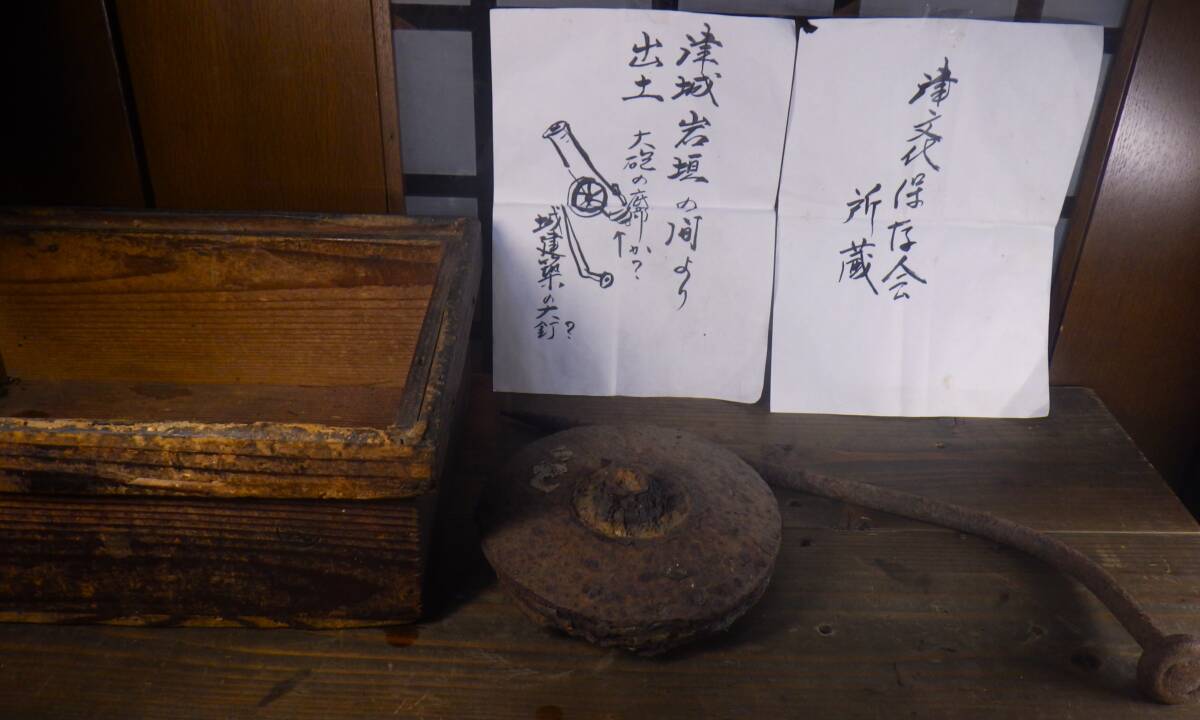 津文化保存会
所蔵
津城岩垣の間より
出土
大砲の か?
城建築の大釘?